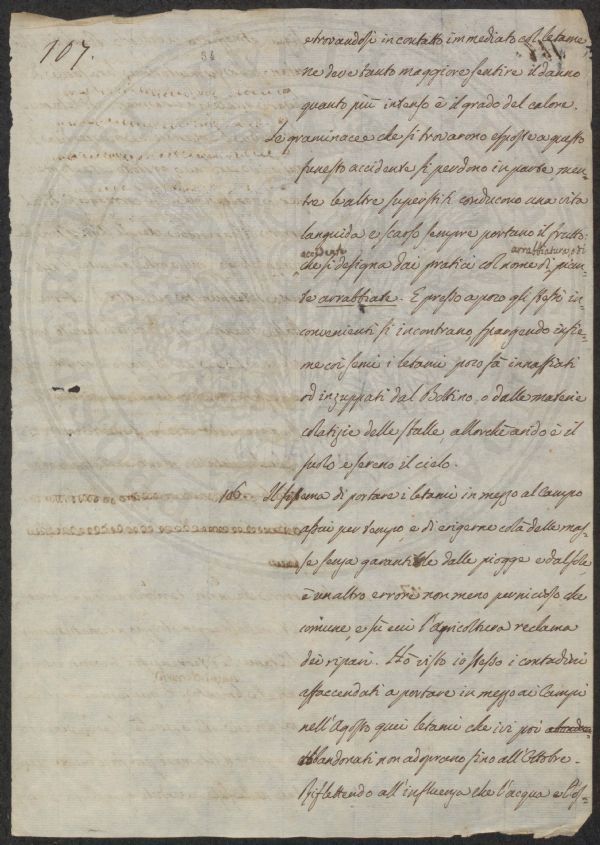 107.
34
e trovandosi in contatto immediato col letame
ne deve tanto maggiore sentire il danno
quanto più intenso è il grado del calore.
Le graminacee che si trovarono esposte a questo
funesto accidente si perdono in parte, men-
tre le altre superstiti conducono una vita
languida e scarso sempre portano il frutto:
accidente arrabbiatura, o di
che si designa dai pratici col nome di pian-
te arrabbiate. E presso a poco gli stessi in-
convenienti si incontrano, spargendo insie-
me coi semi i letami poco fà innaffiati
od inzuppati dal Bottino, o dalle materie
colatizie delle stalle, allorchè arido è il
suolo, e sereno il cielo.
106 Il sistema di portare i letami in mezzo al campo
assai per tempo, e di erigerne colà delle mas-
se senza garantirle dalle piogge e dal sole
è un altro errore non meno pernicioso che
comune, e sù cui l'agricoltura reclama
dei ripari. Hò visto io stesso i contadini
affaccendati a portare in mezzo ai Campi
nell'Agosto quei letami che ivi poi
abbandonati non adoprano fino all'Ottobre.
Riflettendo all'influenza che l'acqua e l'os-